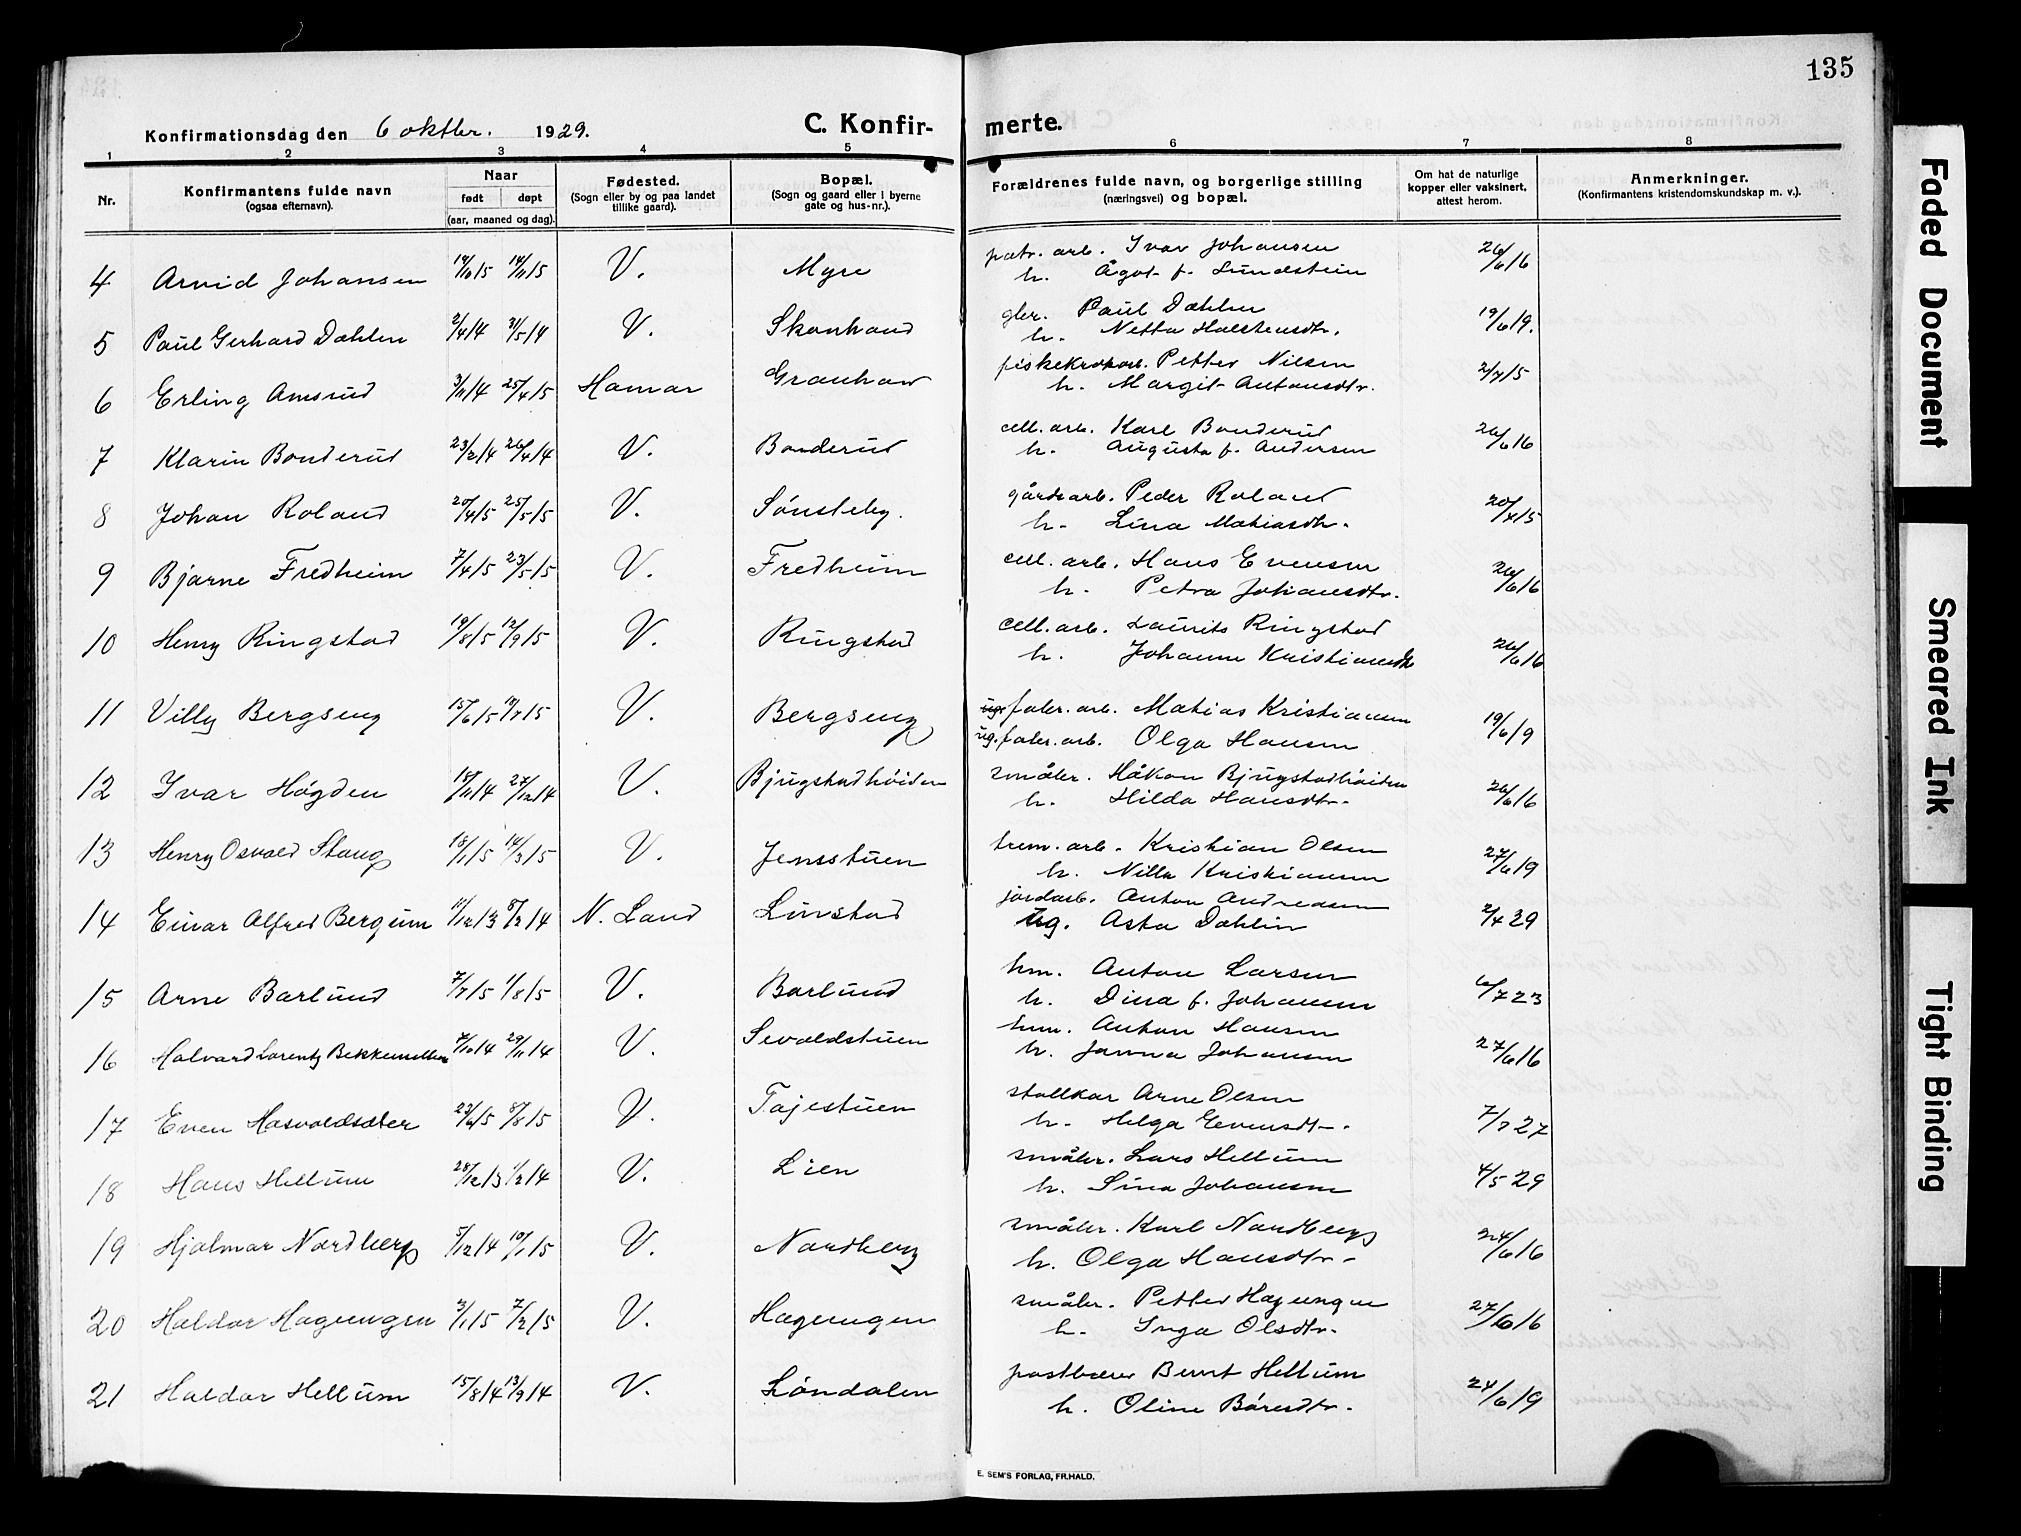 135
Konfirmationsdag den 6 oktbr. 1929.
C. Konfir- merte.
1 2 3 4 5 6 7 8
Nr.
Konfirmantens fulde navn
(ogsaa efternavn).
Naar
født døpt
(aar, maaned og dag).
Fødested.
(Sogn eller by og paa landet
tillike gaard).
Bopæl.
(Sogn og gaard eller i byerne
gate og hus-nr.).
Forældrenes fulde navn, og borgerlige stilling
(næringsvei) og bopæl.
Om hat de naturlige
kopper eller vaksinert,
attest herom.
Anmerkninger.
(Konfirmantens kristendomskundskap m. v.).
4 Arvid Johansen 14/11 15 V. Myre patr. arb. Ivar Johansen 26/6 16
h. Ågot f. Lundstein
5 Paul Gerhard Dæhlen 2/4 14 31/5 14 V. Skonhovd gbr. Paul Dæhlen 19/6 19.
h. Netta Halstensdtr.
6 Erling Amsrud 3/11 14 25/4 15 Hamar Granhaw fiskekrokarb. Petter Nilsen 2/7 15
h. Margit Antonsdtr.
7 Klarin Bonderud 23/2 14 26/4 14 V. Bonderud cell. arb. Karl Bonderud 26/6 16
h. Augusta f. Andersen
8 Johan Roland 20/4 15 25/5 15 V. Sønsteby. gårdsarb. Peder Roland 20/7 15
h. Lina Mathiasdtr.
9 Bjarne Fredheim 7/4 15 23/5 15 V. Fredheim cell. arb. Hans Evensen 26/6 16
h. Petra Johansdtr.
10 Henry Ringstad 19/8 15 12/9 15 V. Ringstad cell. arb. Laurits Ringstad 26/6 16
h. Johanne Kristiansdtr
11 Villy Bergseng 15/6 15 V. Bergseng ug. fabr. arb. Matias Kristiansen 19/6 19
ug. fabr. arb. Olga Hansen
12 Ivar Høgden 27/12 14 V. Bjugstadhöiden småbr. Håkon Bjugstadhöiden 26/6 16
h. Hilda Hansdtr.
13 Henry Osvald Stang 18/1 15 14/3 15 V. Jensstuen trem. arb. Kristian Olsen 27/6 19
h. Nilla Kristiansen
14 Einar Alfred Bergum 11/12 13 8/2 14 N. Land Linstad jordarb. Anton Andreasen 2/4 29
Ug. Asta Dæhlin
15 Arne Barlund 7/7 15 1/8 15 V. Barlund hm. Anton Larsen 6/7 23
h. Dina f. Johansen
16 Halvard Lorentz Bekkemellem 7/10 14 29/11 14 V. Sevaldstuen hm. Anton Hansen 27/6 16
h. Janna Johansen
17 Even Hasvoldsæter 23/6 15 8/8 15 V. Tajestuen stallkar Arne Olsen 7/7 27
h. Helga Evensdtr.
18 Hans Hellum 28/12 13 1/2 14 V. Lien småbr. Lars Hellum 4/5 29
h. Sina Johansen
19 Hjalmar Nordberg 5/12 14 10/1 15 V. Nordberg småbr. Karl Nordberg 24/6 16
h. Olga Hansdtr.
20 Haldor Hagengen 3/1 15 7/2 15 V. Hagengen småbr. Petter Hagengen 27/6 16
h. Inga Olsdtr.
21 Haldor Hellum 15/8 14 13/9 14 V. Løndalen postbærer Bernt Hellum 24/6 19
h. Oline Båresdtr.
E. SEM'S FORLAG, FR.HALD.
Faded Document
Smeared Ink
Tight Binding